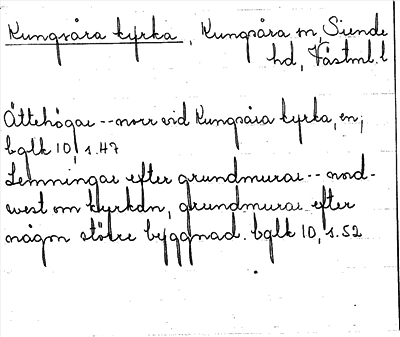 Kungsåra kyrka, Kungsåra sn, Siende
hd, Västml. l
Ättehögar -- norr vid Kungsåra kyrka, en;
bglk 10, s. 47
Lemningar efter grundmurar -- nord-
west om kyrkan, grundmurar efter
någon större byggnad. bglk 10, s. 52